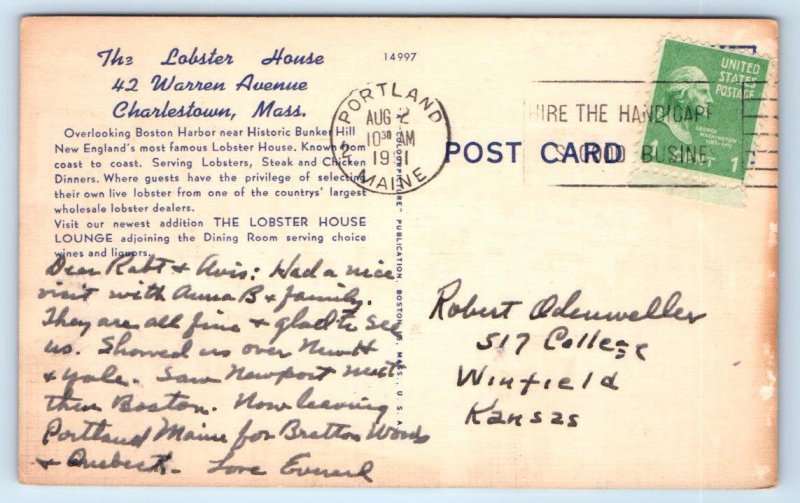 The Lobster House
42 Warren Avenue
Charlestown, Mass.
Overlooking Boston Harbor near Historic Bunker Hill
New England's most famous Lobster House. Known from
coast to coast. Serving Lobsters, Steak and Chicken
Dinners. Where guests have the privilege of selecting
their own live lobster from one of the countrys' largest
wholesale lobster dealers.
Visit our newest addition THE LOBSTER HOUSE
LOUNGE adjoining the Dining Room serving choice
wines and liquors.
Dear Robt & Avis: Had a nice
visit with Anna B & family.
They are all fine & glad to see
us. Showed us over
& Yale. Saw Newport next
then Boston. Now leaving
Portland Maine for Bretton Woods
& Love Everard
14997
PUBLICATION, BOSTON, MASS., U. S. A.
PORTLAND
AUG 2
10 30 AM
MAINE
POST CARD
HIRE THE HANDICAPP
GOOD BUSINE
UNITED
STATES
POSTAGE
GEORGE
WASHINGTON
1
Robert Odenweller
517 College
Winfield
Kansas